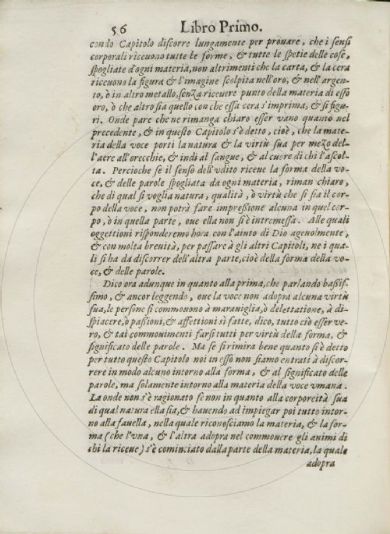 56 Libro Primo.
condo Capitolo discorre lungamente per prouare, che i sensi
corporali riceuono tutte le forme, & tutte le spetie delle cose,
spogliate d'ogni materia, non altrimenti che la carta, & la cera
riceuono la figura & l'imagine scolpita nell'oro, & nell'argen-
to, ò in altro metallo, senza riceuere punto della materia di esso
oro, ò che altro sia quello con che essa cera s'imprima, & si figu-
ri. Onde pare che ne rimanga chiaro esser vano quanto nel
precedente, & in questo Capitolo s'è detto, cioè, che la mate-
ria della voce porti la natura & la virtù sua per mezo del-
l'aere all'orecchie, & indi al sangue, & al cuore di chi l'ascol-
ta. Percioche se il senso dell'vdito riceue la forma della vo-
ce, & delle parole spogliata da ogni materia, riman chiaro,
che di qual si voglia natura, qualità, ò virtù che si sia il cor-
po della voce, non potrà fare impreßione alcuna in quel cor-
po, ò in quella parte, oue ella non si è intromessa. Alle quali
oggettioni risponderemo hora con l'aiuto di Dio ageuolmente,
& con molta breuità, per passare à gli altri Capitoli, ne i qua-
li si ha da discorrer dell'altra parte, cioè della forma della vo-
ce, & delle parole.
Dico ora adunque in quanto alla prima, che parlando baßis-
simo, & ancor leggendo, oue la voce non adopra alcuna virtù
sua, le persone si commouono à marauiglia, ò delettatione, à di-
spiacere, ò paßioni, & affettioni sì fatte, dico, tutto ciò esser ve-
ro, & tai commouimenti farsi tutti per virtù della forma, &
significato delle parole. Ma se si rimira bene quanto si è detto
per tutto questo Capitolo noi in esso non siamo entrati à discor-
rere in modo alcuno intorno alla forma, & al significato delle
parole, ma solamente intorno alla materia della voce vmana.
La onde non s'è ragionato se non in quanto alla corporeità sua
di qual natura ella sia, & hauendo ad impiegar poi tutto intor-
no alla fauella, nella quale riconosciamo la materia, & la for-
ma (che l'vna, & l'altra adopra nel commouere gli animi di
chi la riceue) s'è cominciato dalla parte della materia, la quale
adopra